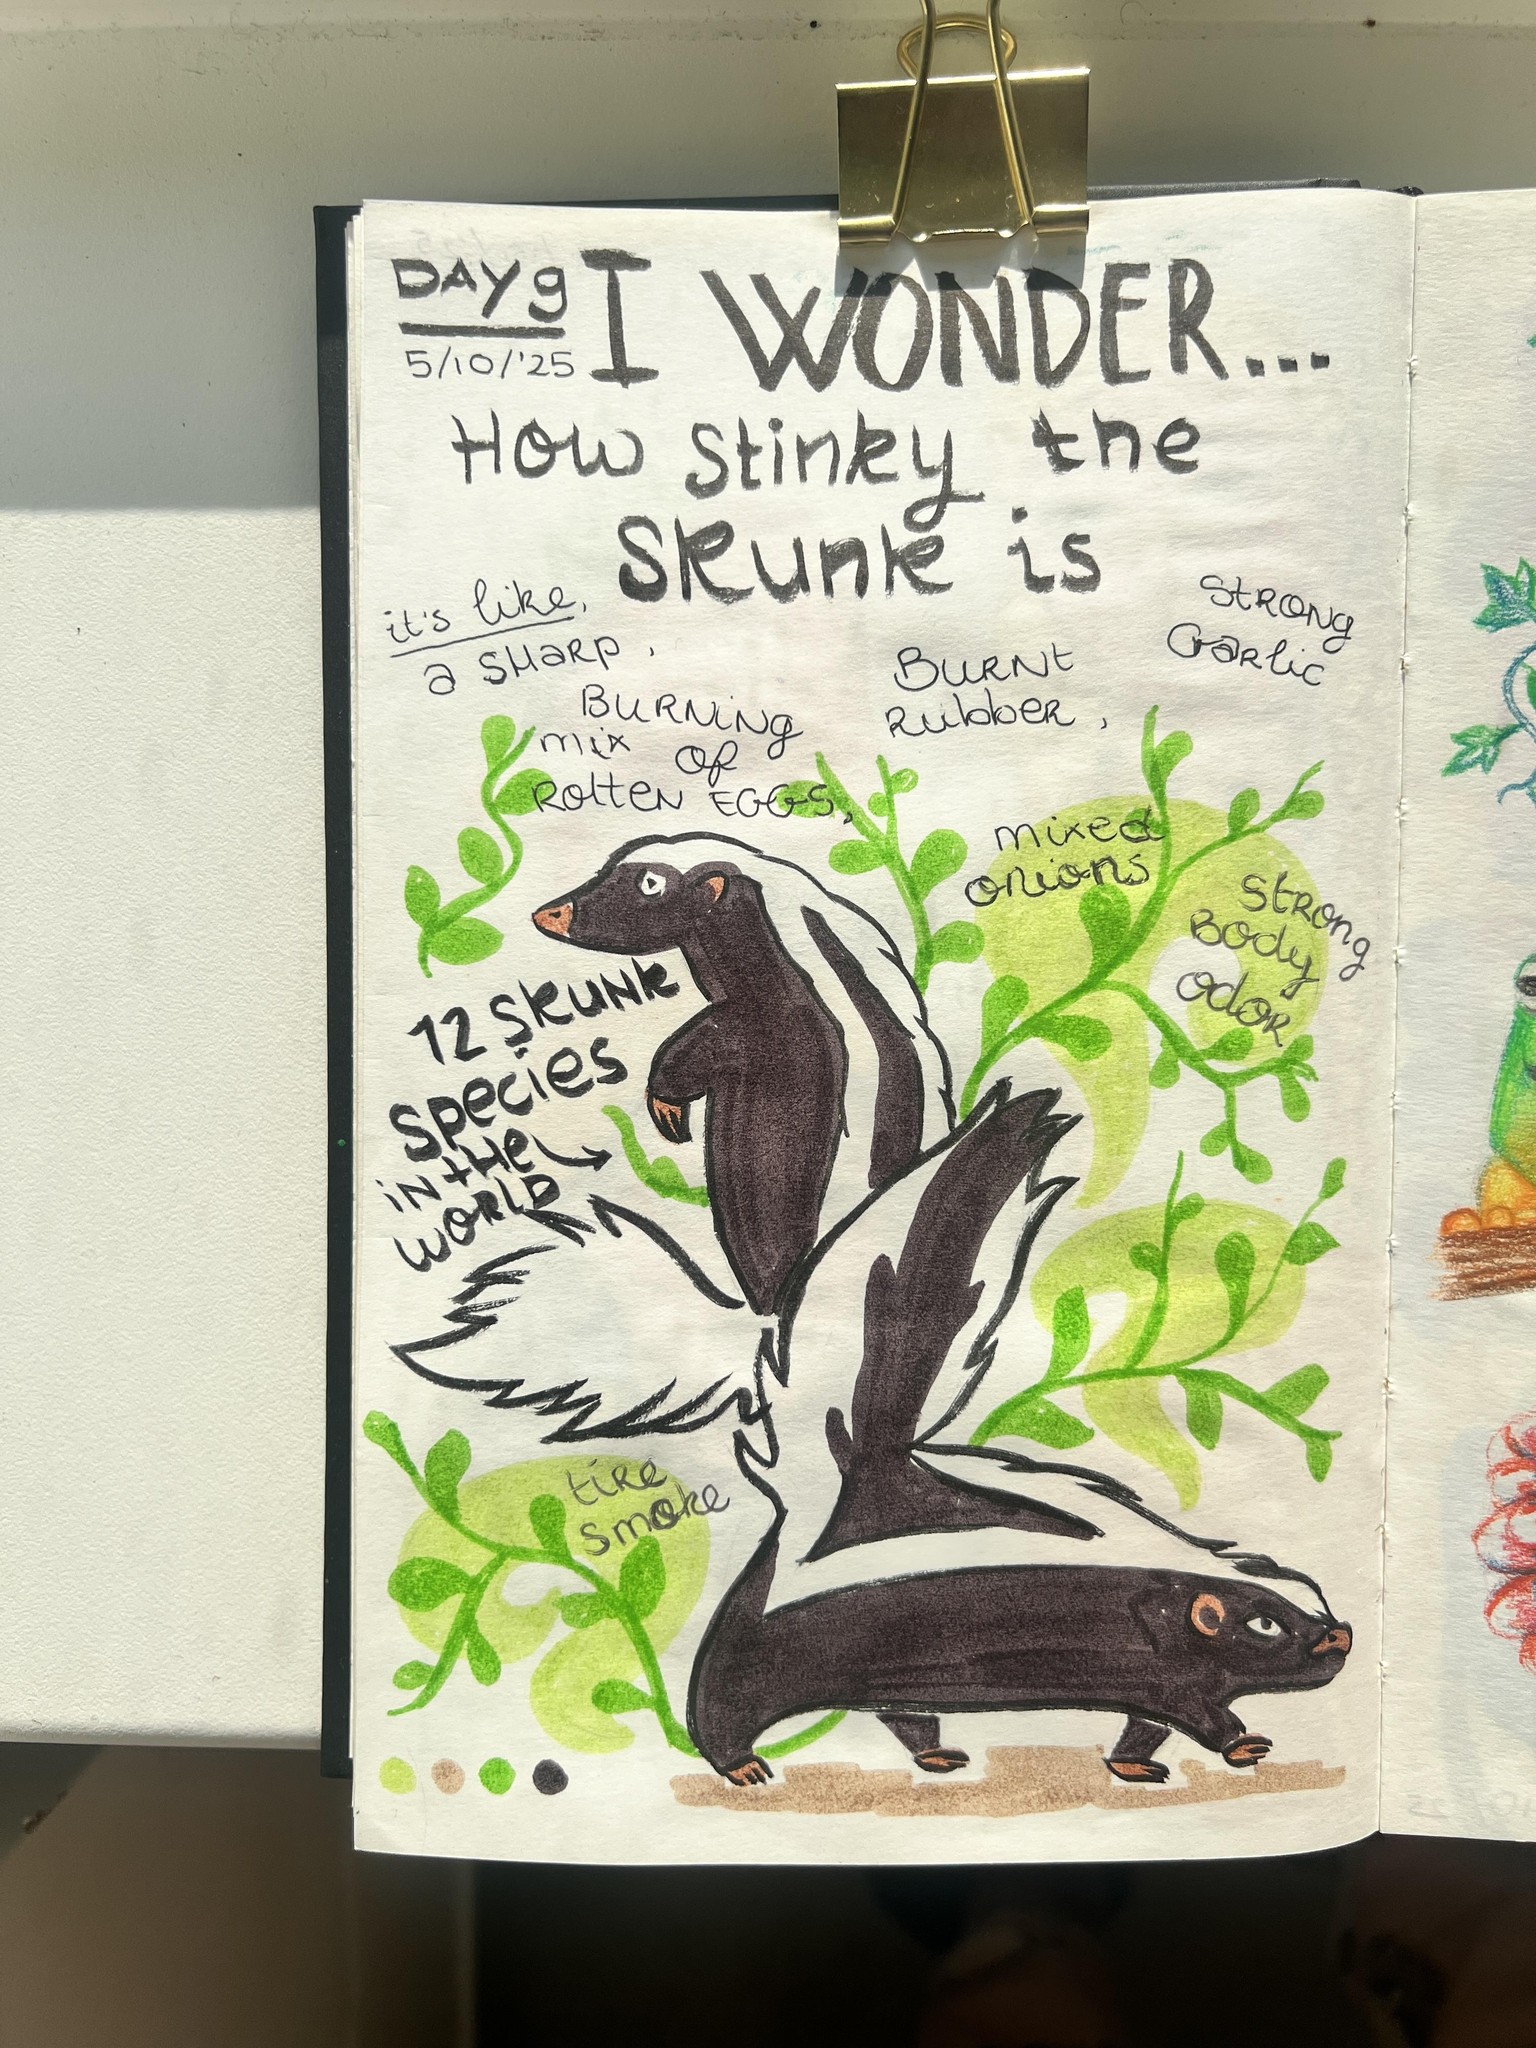 DAY 9
5/10/'25
I WONDER...
How stinky the
skunk is
it's like,
a sharp,
Burning
mix of
rotten eggs,
Burnt
rubber,
strong
Garlic
mixed
onions
strong
Body
odor
12 skunk
species
in the
world
tire
smoke